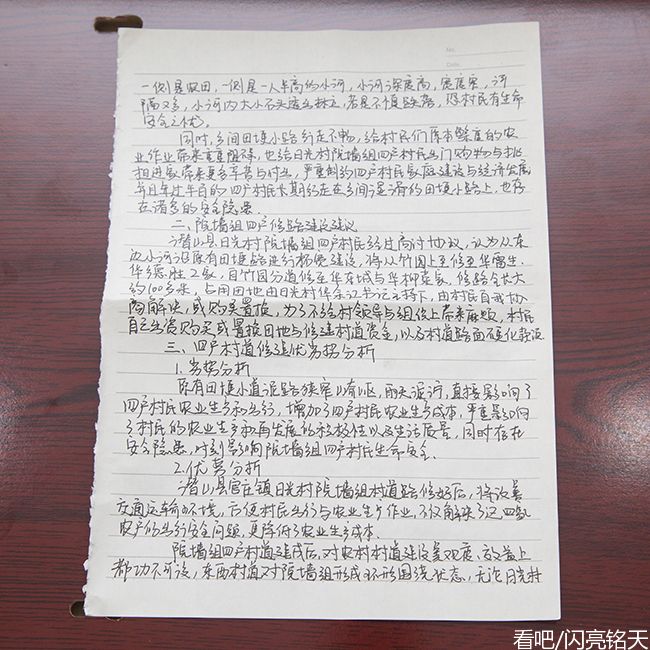 No.
Date.
一侧是农田,一侧是一人半高的小河,小河深度高,宽度窄,河
隔又多,小河内大小石头遍地林立,若是不慎跌落,恐村民有生命
安全之忧。
同时,乡间田埂小路行走不畅,给村民们原本繁重的农
业作业带来重重阻碍,也给日光村院墙组四户村民出门购物与
带来更多辛苦与付出,严重制约四户村民家庭建设与经济发展
并且年过半百的四户村民长期行走在乡间湿滑的田埂小路上,也存
在诸多的安全隐患
二、院墙组四户修路建设建议
潜山县日光村院墙组四户村民经过商讨协议,认为从东
边小河沿原有田埂路进行拓宽建设,将从竹园上至修至华
华 2家,自竹园分道修至华 与华 家,修路全长大
约100多米,占用田地由日光村 书记主持下,由村民自我协
商解决,或购买置换,为了不给村领导与组织上带来麻烦,村民
自己出资购买或置换田地与修建村道资金,以及村道路面硬化款项
三、四户村道修建优劣势分析
1.劣势分析
原有田埂小道泥路狭窄 ,雨天泥泞,直接影响了
四户村民农业生产和出行,增加了四户村民农业生产成本,严重影响
了村民的农业生产和再发展的积极性以及生活质量,同时存在
安全隐患,时刻影响院墙组四户村民生命安全。
2.优势分析
潜山县官庄镇日光村院墙组村道路修好后,将改善
交通运输环境,方便村民出行与农业生产作业,不仅解决了这四家
农户的出行安全问题,更降低了农业生产成本。
院墙组四户村道建成后,对农村村道建设美观度、效益上
都功不可没,东西村道对院墙组形成环形围绕状态,无论日光村
看吧/闪亮铭天